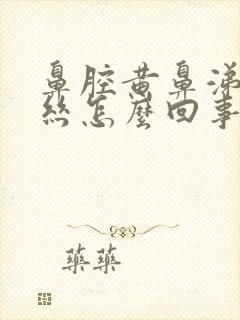 鼻腔黄鼻涕
丝怎麽回事
藥藥